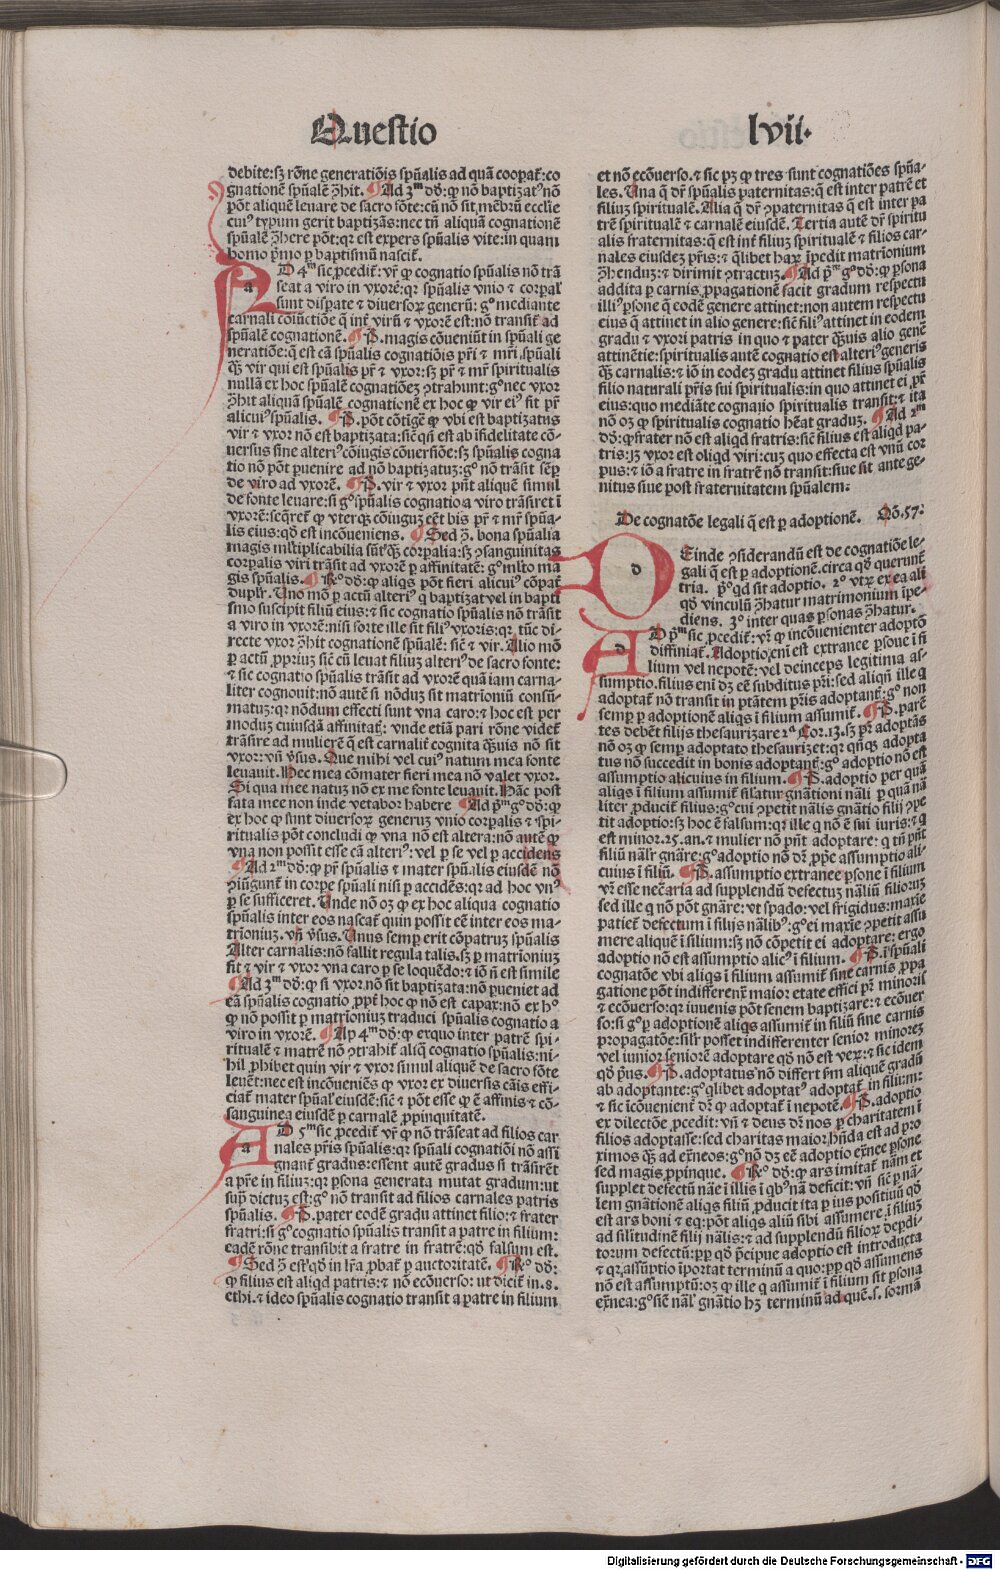 Questio lvii.
debite: sꝫ rōne generatiōis spūalis ad quā coopat᷑: co
gnationē spūalē ꝯhit. ¶ Ad 3ᵐ dd̄: ꝙ nō baptizatꝰ nō
pōt aliquē leuare de sacro fōte: cū nō sit mēbrū ecclīe
cuiꝰ typum gerit baptizās: nec tn̄ aliquā cognationē
spūalē ꝯhere pōt: qꝛ est expers spūalis vite: in quam
homo p̄mo ꝑ baptismū nascit᷑.
AD 4ᵐ sic ꝓcedit᷑: vr̄ ꝙ cognatio spūalis nō trā
seat a viro in vxorē: qꝛ spūalis vnio ⁊ corꝑal'
sunt disꝑate ⁊ diuersoꝝ generū: gͦ mediante
carnali cōiūctiōe q̄ int̄ virū ⁊ vxorē est: nō transit᷑ ad
spūalē cognationē. ¶ P̄. magis cōueniūt in spūali ge
neratiōe: q̄ est cā spūalis cognatiōis pr̄i ⁊ mr̄i spūali
qꝫ̄ vir qui est spūalis pr̄ ⁊ vxor: sꝫ pr̄ ⁊ mr̄ spiritualis
nullā ex hoc spūalē cognatiōeꝫ ꝯtrahunt: gͦ nec vxor
ꝯhit aliquā spūalē cognationē ex hoc ꝙ vir eiꝰ fit pr̄
alicuiꝰ spūalis. ¶ P̄. pōt cōtīgē ꝙ vbi est baptizatus
vir ⁊ vxor nō est baptizata: sic̄ qn̄ est ab īfidelitate cō-
uersus sine alteriꝰ cōiugis cōuersiōe: sꝫ spūalis cogna
tio nō pōt ꝑuenire ad nō baptizatuꝫ: gͦ nō trāsit sēꝑ
de viro ad vxorē. ¶ P̄. vir ⁊ vxor pn̄t aliquē simul
de fonte leuare: si gͦ spūalis cognatio a viro trāsiret ī
vxorē: seqret᷑ ꝙ vterqꝫ cōiuguꝫ eēt bis pr̄ ⁊ mr̄ spūa-
lis eius: qd̄ est incōueniens. ¶ Sed ꝯ. bona spūalia
magis mltiplicabilia sūt qꝫ̄ corꝑalia: sꝫ ꝯsanguinitas
corꝑalis viri trāsit ad vxorē ꝑ affinitatē: gͦ mlto ma
gis spūalis. ¶ Rͦ dd̄: ꝙ aliqs pōt fieri alicuiꝰ cōpat᷑
duplr̄. Uno mō ꝑ actū alteriꝰ q baptizat vel in bapti
smo suscipit filiū eius: ⁊ sic cognatio spūalis nō trāsit
a viro in vxorē: nisi forte ille sit filiꝰ vxoris: qꝛ tūc di-
recte vxor ꝯhit cognationē spūalē: sic̄ ⁊ vir. Alio mō
ꝑ actū ꝓprium sic̄ cū leuat filiuꝫ alteriꝰ de sacro fonte:
⁊ sic cognatio spūalis trāsit ad vxorē quā iam carna-
liter cognouit: nō autē si nōduꝫ sit matrīoniū consū-
matuꝫ: qꝛ nōdum effecti sunt vna caro: ⁊ hoc est per
moduꝫ cuiusdā affinitat᷑: vnde etiā pari rōne videt᷑
trāsire ad mulierē q̄ est carnalit᷑ cognita qꝫ̄uis nō sit
vxor: vn̄ v̄sus. Que mihi vel cuiꝰ natum mea fonte
leuauit. Hec mea cōmater fieri mea nō valet vxor.
Si qua mee natuꝫ nō ex me fonte leuauit. Hāc post
fata mee non inde vetabor habere ¶ Ad p̄ᵐ gͦ dd̄: ꝙ
ex hoc ꝙ sunt diuersoꝝ generuꝫ vnio corꝑalis ⁊ spi-
ritualis pōt concludi ꝙ vna nō est altera: nō autē ꝙ
vna non possit esse cā alteriꝰ: vel ꝑ se vel ꝑ accidens
¶ Ad 2ᵐ dd̄: ꝙ pr̄ spūalis ⁊ mater spūalis eiusdē nō
ꝯiūgunt᷑ in corꝑe spūali nisi ꝑ accidēs: qꝛ ad hoc vnꝰ
ꝑ se sufficeret. Unde nō oꝫ ꝙ ex hoc aliqua cognatio
spūalis inter eos nascat᷑ quin possit eē inter eos ma-
trioniuꝫ. vn̄ v̄sus. Unus semꝑ erit cōpatruꝫ spūalis
Alter carnalis: nō fallit regula talis. sꝫ ꝑ matrioniuꝫ
fit ⁊ vir ⁊ vxor vna caro ꝑ se loquēdo: ⁊ iō ñ est simile
¶ Ad 3ᵐ dd̄: ꝙ si vxor nō sit baptizata: nō ꝑueniet ad
eā spūalis cognatio ꝓpt᷑ hoc ꝙ nō est capax: nō ex hͦ
ꝙ nō possit ꝑ matrioniuꝫ traduci spūalis cognatio a
viro in vxorē. ¶ Ap 4ᵐ dd̄: ꝙ exquo inter patrē spi-
ritualē ⁊ matrē nō ꝯtrahit᷑ aliq̄ cognatio spūalis: ni-
hil ꝓhibet quin vir ⁊ vxor simul aliquē de sacro fōte
leuēt: nec est incōueniēs ꝙ vxor ex diuersis cāis effi-
ciat᷑ mater spūal' eiusdē: sic̄ ⁊ pōt esse ꝙ ē affinis ⁊ cō-
sanguinea eiusdē ꝑ carnalē ꝓpinquitatē.
AD 5ᵐ sic ꝓcedit᷑ vr̄ ꝙ nō trāseat ad filios car
nales pr̄is spūalis: qꝛ spūali cognatiōi nō assi
gnant᷑ gradus: essent autē gradus si trāsiret
a pr̄e in filiuꝫ: qꝛ ꝑsona generata mutat gradum: ut
supͣ dictuꝫ est: gͦ nō transit ad filios carnales patris
spūalis. ¶ P̄. pater eodē gradu attinet filio: ⁊ frater
fratri: si gͦ cognatio spūalis transit a patre in filium:
eadē rōne transibit a fratre in fratrē: qd̄ falsum est.
¶ Sed ꝯ est qd̄ in lr̄a ꝓbat᷑ ꝑ auctoritatē. ¶ Rͦ dd̄:
ꝙ filius est aliqd patris: ⁊ nō ecōuerso: ut dicit᷑ in. 8.
ethi. ⁊ ideo spūalis cognatio transit a patre in filium
et nō ecōuerso. ⁊ sic pꝫ ꝙ tres sunt cognatiōes spūa-
les. Una q̄ dr̄ spūalis paternitas: q̄ est inter patrē et
filiuꝫ spiritualē. Alia q̄ dr̄ ꝯpaternitas q̄ est inter pa
trē spiritualē ⁊ carnalē eiusdē. Tertia autē dr̄ spiritu
alis fraternitas: q̄ est int᷑ filiuꝫ spiritualē ⁊ filios car-
nales eiusdeꝫ pr̄is: ⁊ q̄libet haꝝ īpedit matrīonium
ꝯhenduꝫ: ⁊ dirimit ꝯtractuꝫ. ¶ Ad p̄ᵐ gͦ dd̄: ꝙ ꝑsona
addita ꝑ carnis ꝓpagationē facit gradum respectu
illiꝰ ꝑsone q̄ eodē genere attinet: non autem respectu
eius q̄ attinet in alio genere: sic̄ filiꝰ attinet in eodem
gradu ⁊ vxori patris in quo ⁊ pater qꝫ̄uis alio genē
attinētie: spiritualis autē cognatio est alteriꝰ generis
qꝫ̄ carnalis: ⁊ iō in eodeꝫ gradu attinet filius spūalis
filio naturali pr̄is sui spiritualis: in quo attinet ei pr̄
eius: quo mediāte cognatio spiritualis transit: ⁊ ita
nō oꝫ ꝙ spiritualis cognatio hēat graduꝫ. ¶ Ad 2ᵐ
dd̄: ꝙ frater nō est aliqd fratris: sic̄ filius est aliqd pa-
tris: sꝫ vxor est oliqd viri: cuꝫ quo effecta est vnū cor
pus: ⁊ iō a fratre in fratrē nō transit: siue sit ante ge-
nitus siue post fraternitatem spūalem:
De cognatōe legali q̄ est ꝑ adoptionē. Qō. 57:
DEinde ꝯsiderandū est de cognatiōe le-
gali q̄ est ꝑ adoptionē. circa qd̄ querunt᷑
tria. p̄ͦ qd sit adoptio. 2ͦ vtꝝ ex ea ali
qd̄ vinculū ꝯhatur matrimonium īpe-
diens. 3ͦ inter quas ꝑsonas ꝯhatur.
AD p̄ᵐ sic ꝓcedit᷑: vr̄ ꝙ incōuenienter adoptō
diffiniat᷑. Adoptio eni est extranee ꝑsone ī fi
lium vel nepotē: vel deinceps legitima as-
sumptio. filius enī dꝫ eē subditus pr̄i: sed aliqn̄ ille q
adoptat᷑ nō transit in ptātem pr̄is adoptant᷑: gͦ non
semꝑ ꝑ adoptionē aliqs ī filium assumit᷑. ¶ P̄. parē
tes debēt filijs thesaurizare 2ᵃ Cor. 13. sꝫ pr̄ adoptās
nō oꝫ ꝙ semꝑ adoptato thesaurizet: qꝛ qn̄qꝫ adopta
tus nō succedit in bonis adoptant᷑: gͦ adoptio nō est
assumptio alicuius in filium. ¶ P̄. adoptio per quā
aliqs ī filium assumit᷑ siłatur gnātioni nāli ꝑ quā nā
liter ꝓducit᷑ filius: gͦ cui ꝯpetit nālis gnātio filij ꝯpe
tit adoptio: sꝫ hoc ē falsum: qꝛ ille q nō ē sui iuris: ⁊ q
est minor. 25. an. ⁊ mulier nō pn̄t adoptare: q tn̄ pn̄t
filiū nālr̄ gnāre: gͦ adoptio nō dr̄ ꝓpe assumptio ali-
cuius ī filiū. ¶ P̄. assumptio extranee ꝑsone ī filium
vr̄ esse necāria ad supplendū defectuꝫ nāliū filioruꝫ
sed ille q nō pōt gnāre: vt spado: vel frigidus: maxīe
patiet᷑ defectum ī filijs nālibꝰ: gͦ ei maxīe ꝯpetit assu
mere aliquē ī filium: sꝫ nō cōpetit ei adoptare: ergo
adoptio nō est assumptio alicꝰ ī filium. ¶ P̄. ī spūali
cognatōe vbi aliqs ī filium assumit᷑ sine carnis ꝓpa
gatione pōt indifferent᷑ maior etate effici pr̄ minoris
⁊ ecōuerso: qꝛ iuuenis pōt senem baptizare: ⁊ ecōuer
so: si gͦ ꝑ adoptionē aliqs assumit᷑ in filiū sine carnis
ꝓpagatōe: silr̄ posset indifferenter senior minoreꝫ
vel iunior seniorē adoptare qd̄ nō est verꝫ: ⁊ sic idem
qd̄ p̄us. ¶ P̄. adoptatus nō differt ẜm aliquē gradū
ab adoptante: gͦ q̄libet adoptatꝰ adoptat᷑ in filium:
⁊ sic īcōuenient᷑ dr̄ ꝙ adoptat᷑ ī nepotē. ¶ P̄. adoptio
ex dilectōe ꝓcedit: vn̄ ⁊ deus dr̄ nos ꝑ charitatem ī
filios adoptasse: sed charitas maior hn̄da est ad pro
ximos qꝫ̄ ad ex̄neos: gͦ nō dꝫ eē adoptio ex̄nee ꝑsone
sed magis ꝓpinque. ¶ Rͦ dd̄: ꝙ ars imitat᷑ nām et
supplet defectū nāe ī illis ī qbꝰ nā deficit: vn̄ sic̄ ꝑ nā-
lem gnātionē aliqs filiū ꝓducit ita ꝑ ius positiuū qd̄
est ars boni ⁊ eq: pōt aliqs aliū sibi assumere ī filiuꝫ
ad silitudinē filij nālis: ⁊ ad supplendū filioꝝ deꝑdi-
torum defectū: ꝓpͥ qd̄ p̄cipue adoptio est introducta
⁊ qꝛ assūptio īportat terminū a quo: ꝓpͥ qd̄ assumens
nō est assumptū: oꝫ ꝙ ille q assumit᷑ ī filium sit ꝑsona
ex̄nea: gͦ sic̄ nāl' gnātio hꝫ terminū ad quē. s. formā
Digitalisierung gefördert durch die Deutsche Forschungsgemeinschaft - DFG